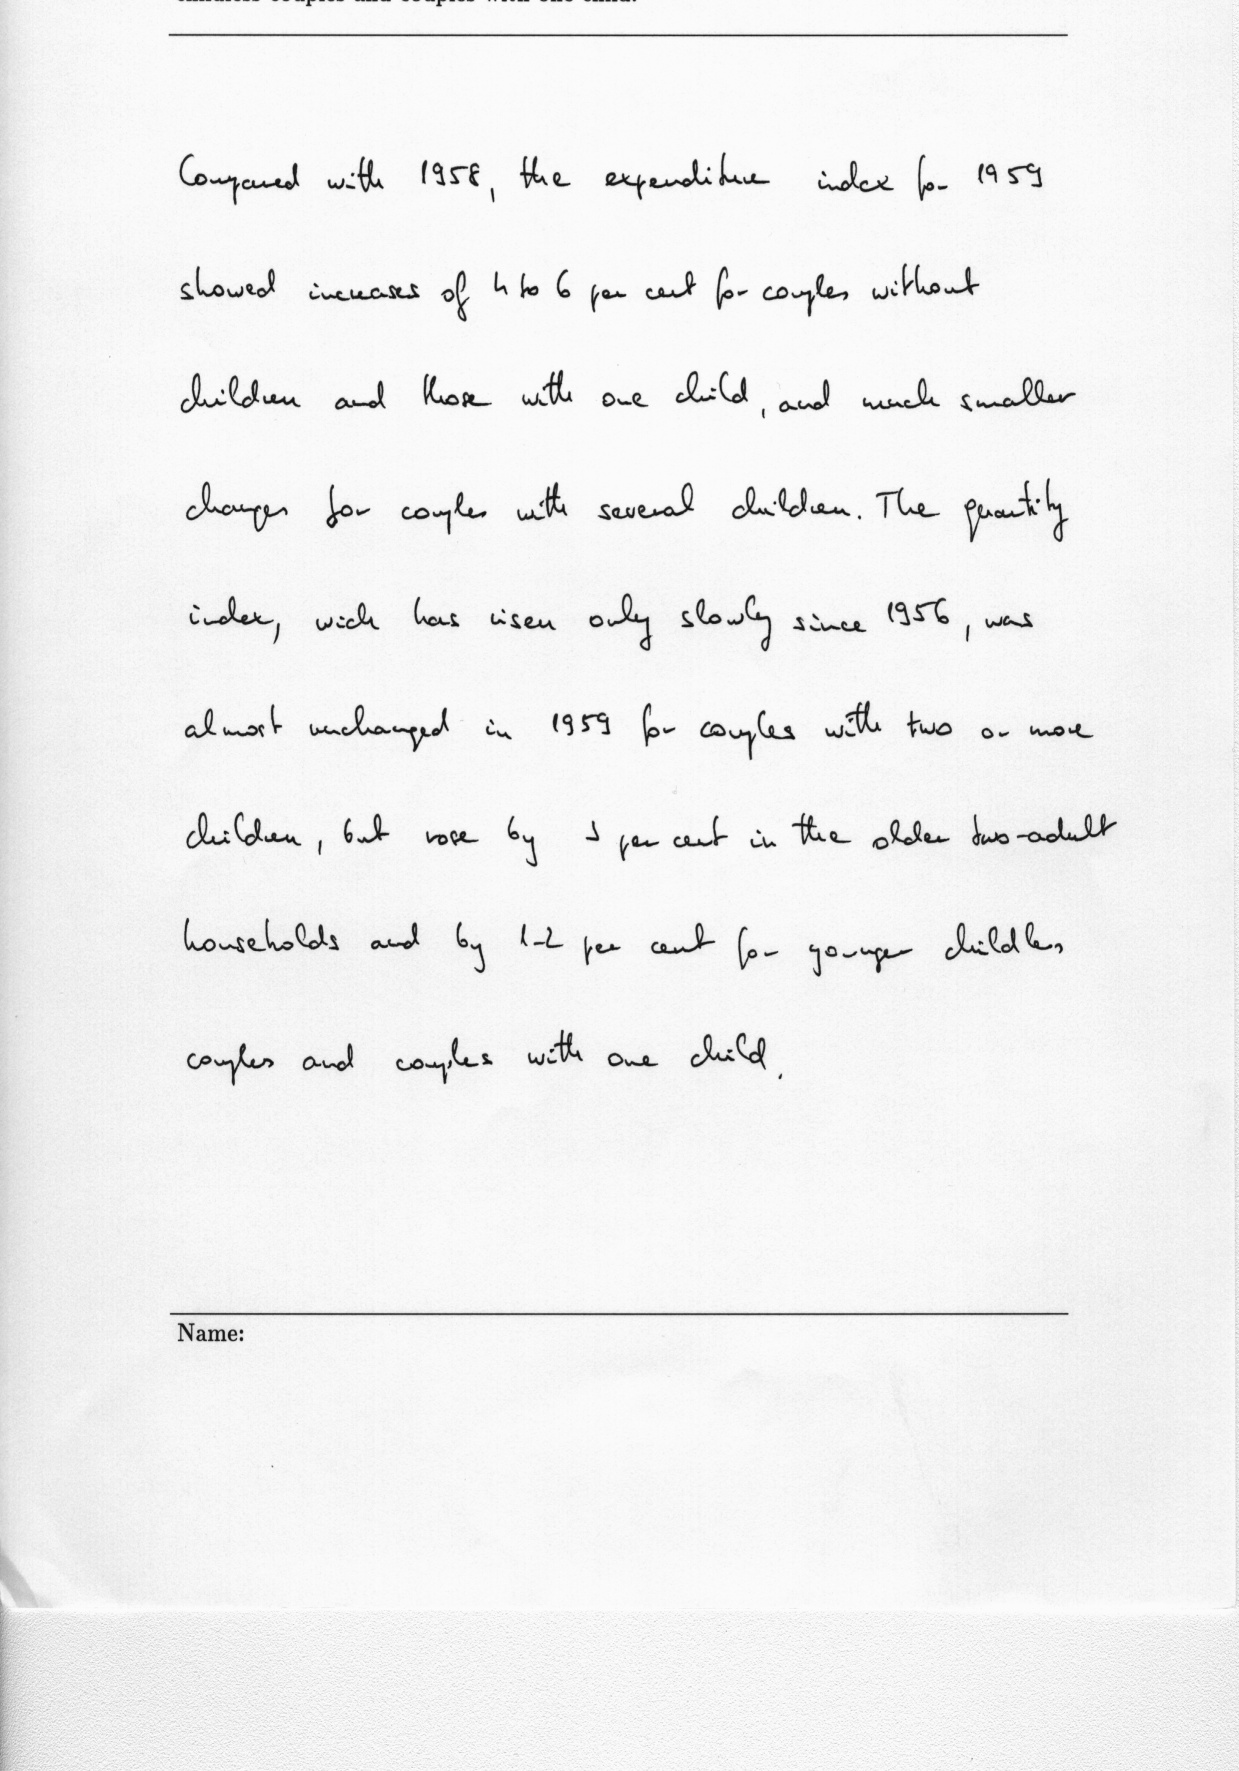 childless couples and couples with one child.
Compared with 1958, the expenditure index for 1959
showed increases of 4 to 6 per cent for couples without
children and those with one child, and much smaller
changes for couples with several children. The quantity
index, wich has risen only slowly since 1956, was
almost unchanged in 1959 for couples with two or more
children, but rose by per cent in the older two-adult
households and by 1-2 per cent for younger childless
couples and couples with one child.
Name: